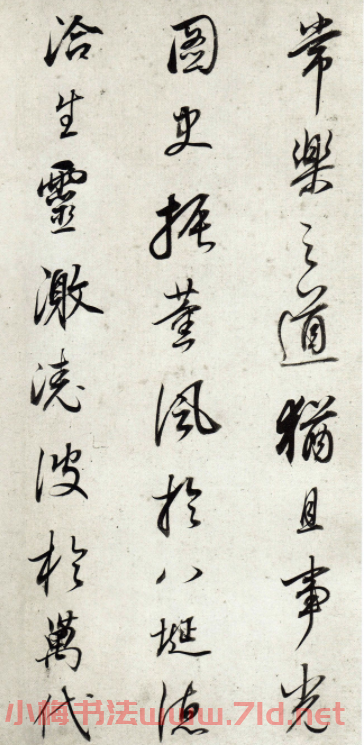 常樂之道猶且事光
圖史振薰風於八埏德
洽生靈激澆波於萬代
小梅书法www.7ld.net